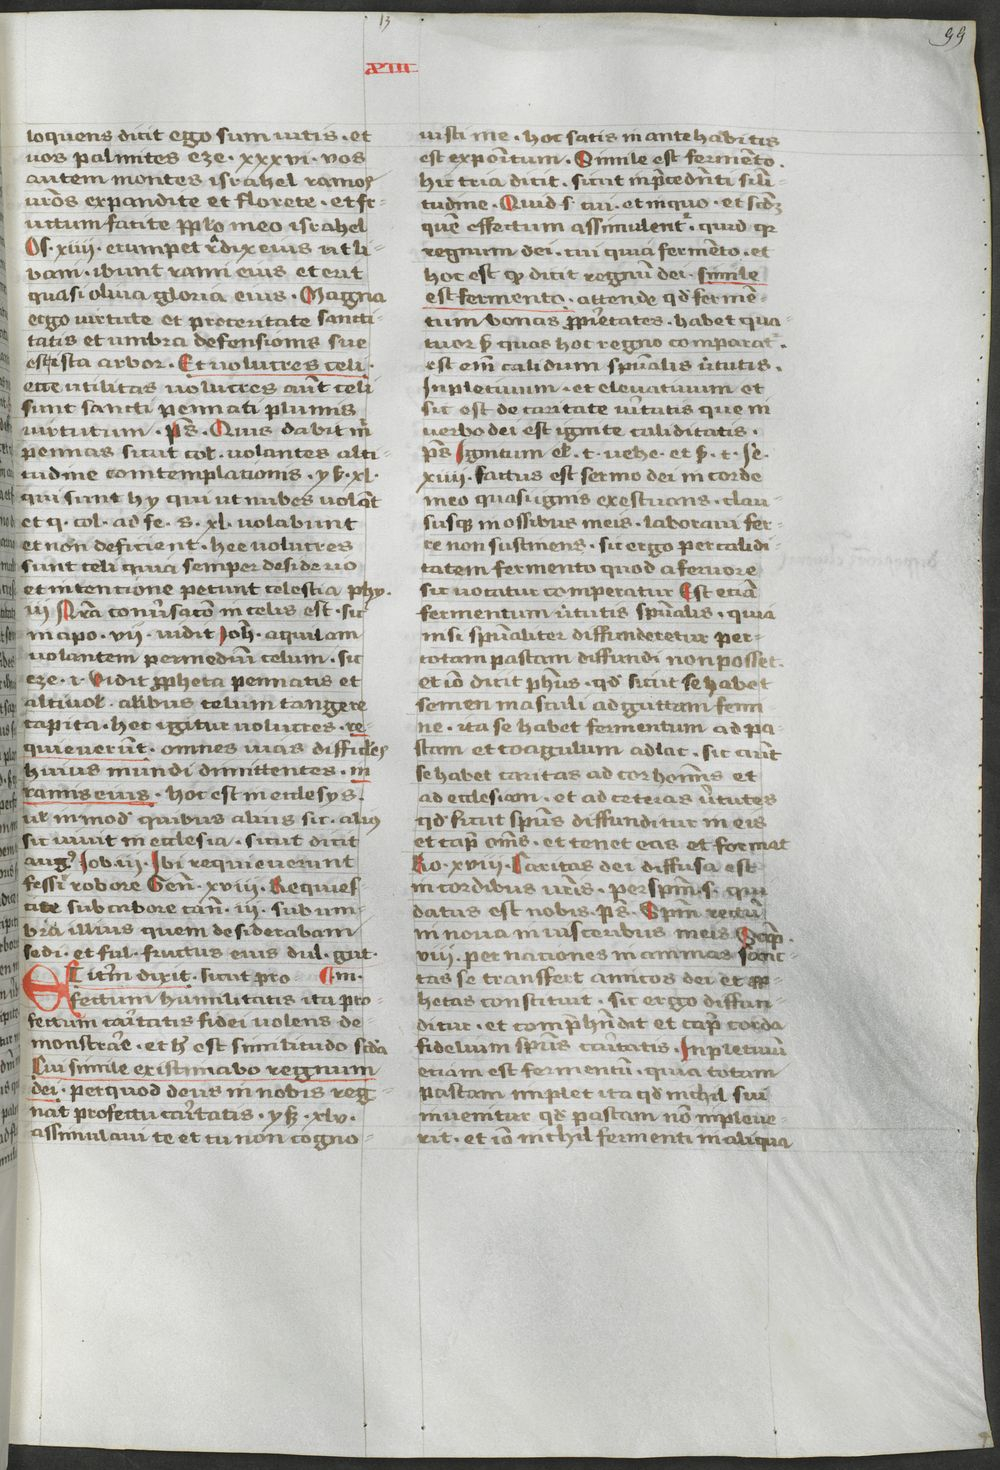 13
99
XIII
loquens dicit ego sum uitis · et
uos palmites eze · xxxvi · uos
autem montes israhel ramos
urōs expandite et florete · et fr-
uctum facite pplo meo israhel
Os · xiiii · erumpet radix eius ut li-
bani · ibunt rami eius et erit
quasi oliua gloria eius · Magna
ergo uirtute et proceritate sancti-
tatis et umbra defensionis sue
est ista arbor · Et uolucres celi ·
ecce utilitas uolucres aūt celi
sunt sancti pennati plumis
uirtutum · ps̄ · Quis dabit m̄
pennas sicut col · uolantes alti-
tudine comtemplationis · ys · xl ·
qui sunt hy qui ut nubes uolāt
et q · col · ad fe · s · xl · uolabunt
et non deficient · hee uolucres
sunt celi quia semper desiderio
et intentione petunt celestia phy ·
iij Nrā conuersatō in celis est · sic
in apo · vij · uidit Joh̄ · aquilam
uolantem per mediū celum · sic
eze · i · Vidit ppheta pennatis et
altiuol · alibus celum tangere
capita · hec igitur uolucres · re-
quieuerūt · omnes uias difficiles
huius mundi dimittentes · in
ramis eius · hoc est in ecclesys ·
ul̄ in mod̄ quibus alius sic · alius
sic uiuit in ecclesia · sicut dicit
aug⁹ Job · iij · Ibi requieuerunt
fessi robore Gen̄ · xviii · Requies-
cite sub arbore cān̄ · ii · sub um-
bra illius quem desiderabam
sedi · et ful · fructus eius dul · gut ·
ET itm̄ dixit · sicut pro Am ·
fectum humilitatis ita pro-
fectum caritatis fidei uolens de-
monstrare · et h̄ est similitudo sc̄da
Cui simile existimabo regnum
dei · per quod deus in nobis reg-
nat profectu caritatis · ys · xlv ·
assimilaui te et tu non cogno-
uisti me · hoc satis in antehabitis
est expositum · Simile est fermēto ·
hic tria dicit · sicut in p̄cedn̄ti sil̄i-
tudine · Quid s · cui · et in quo · et scd̄z
quē effectum assimulent̄ · quid q̄r
regnum dei · cui quia fermēto · et
hoc est q̄ dicit regnū dei · simile
est fermento · attende qd̄ fermē-
tum bonas pp̄ietates · habet qua-
tuor s̄ quas hoc regno comparat̄ ·
est em̄ calidum spūalis ūtutis ·
Inpletiuum · et eleuatiuum et
sic est de caritate ūtutis que in
uerbo dei est ignite caliditatis ·
ps̄ Ignitum el̄ · t · uehe · et s̄ · t · Je ·
xiiii · Factus est sermo dei in corde
meo quasi ignis exestuans · clau-
susq̄ in ossibus meis · laboraui fer-
re non sustinens · sic ergo per calidi-
tatem fermento quod a feruore
sic uocatur comperatur Est etiā
fermentum ūtutis spūalis · quia
nisi spūaliter diffunderetur per-
totam pastam diffundi non posset ·
et iō dicit ph̄us · qd̄ sicut se habet
semen masculi ad guttam femi-
ne · ita se habet fermentum ad pa-
stam et coagulum ad lac · sic aūt
se habet caritas ad cor hominis et
ad ecclesiam · et ad ceteras ūtutes
qd̄ sicut spūs diffunditur in eis
et cap̄ om̄s · et tenet eas et format
Ro · xviii · Caritas dei diffusa est
in cordibus ur̄is · per spm̄ · s · qui
datus est nobis · ps̄ · Spm̄ rectū
in noua in uisceribus meis Sap̄ ·
viij · per nationes in animas sanc-
tas se transfert amicos dei et pp̄-
hetas constituit · sic ergo diffun-
ditur · et comp̄hn̄dit et cap̄ corda
fidelium spūs caritatis · Inpletiuū
etiam est fermentū · quia totam
pastam implet ita qd̄ nichil sui
inuenitur qd̄ pastam nō impleue-
rit · et iō nichil fermenti in aliqua